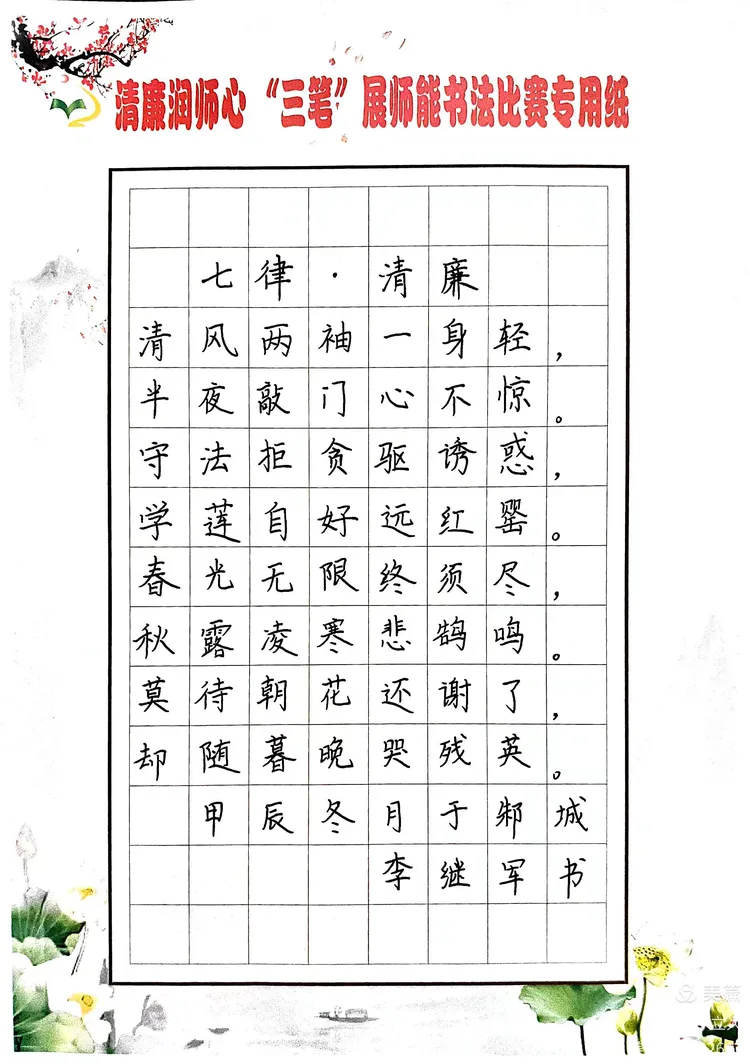 清廉润师心“三笔”展师能书法比赛专用纸
七律·清廉
清风两袖一身轻，
半夜敲门心不惊。
守法拒贪驱诱惑，
学莲自好远红罂。
春光无限终须尽，
秋露凌寒悲鹄鸣。
莫待朝花还谢了，
却随暮晚哭残英。
甲辰冬月于邾城
李继军书
美篇